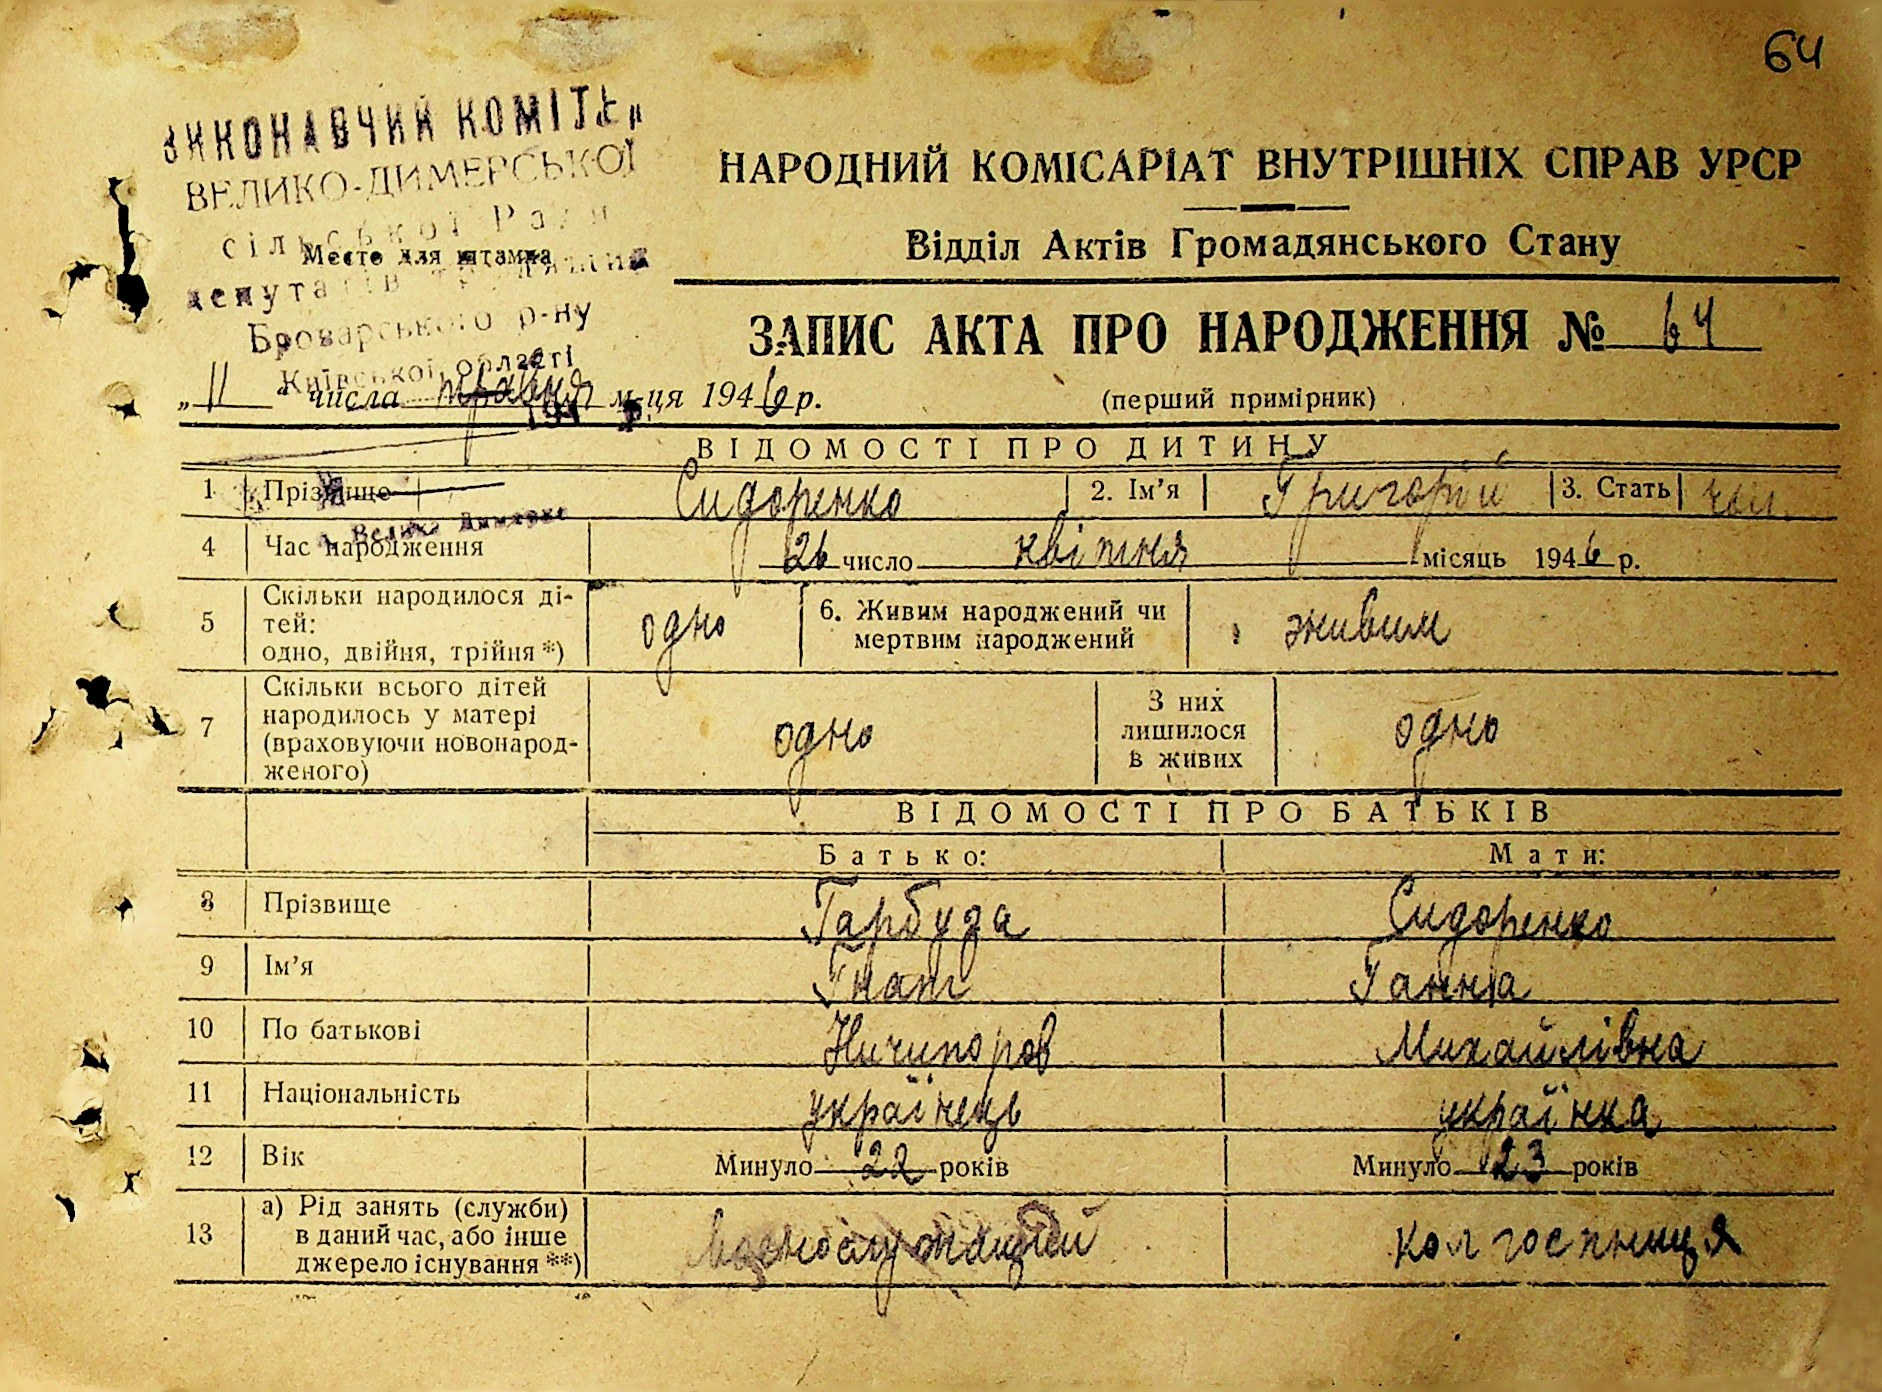 64
ВИКОНАВЧИЙ КОМІТЕ
ВЕЛИКО-ДИМЕРСЬКОЇ
сільської Ради
Место для штампа
депутатів
Броварського р-ну
Київської області
194 р.
НАРОДНИЙ КОМІСАРІАТ ВНУТРІШНІХ СПРАВ УРСР
Відділ Актів Громадянського Стану
ЗАПИС АКТА ПРО НАРОДЖЕННЯ № 64
„11“ числа травня м-ця 1946 р.
(перший примірник)
ВІДОМОСТІ ПРО ДИТИНУ
1 Прізвище Сидоренко 2. Ім’я Григорій 3. Стать чол.
Велика Димерка
4 Час народження 26 число квітня місяць 1946 р.
5 Скільки народилося ді-
тей:
одно, двійня, трійня *)
одно
6. Живим народжений чи
мертвим народжений
живим
7 Скільки всього дітей
народилось у матері
(враховуючи новонарод-
женого)
одно
З них
лишилося
в живих
одно
ВІДОМОСТІ ПРО БАТЬКІВ
Батько: Мати:
8 Прізвище Гарбуза Сидоренко
9 Ім’я Гнат Ганна
10 По батькові Ничипоров Михайлівна
11 Національність українець українка
12 Вік Минуло 22 років Минуло 23 років
13 а) Рід занять (служби)
в даний час, або інше
джерело існування **)
колгоспниця